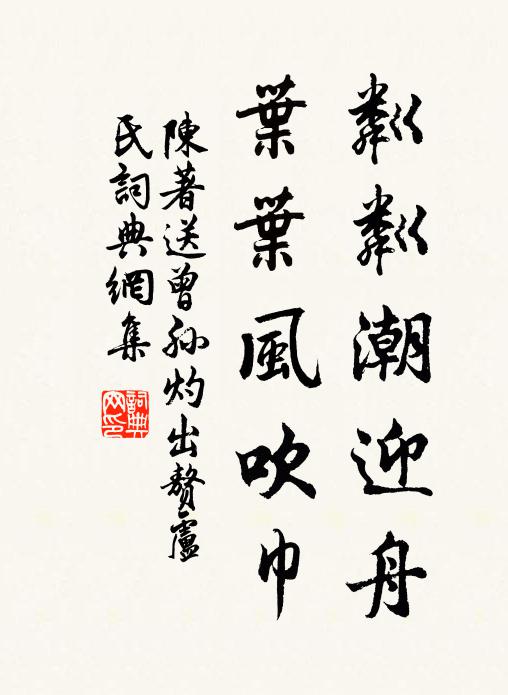 粼粼潮迎舟
葉葉風吹巾
陳著送曾孙灼出贅廬
氏詞典網集
詞典网印